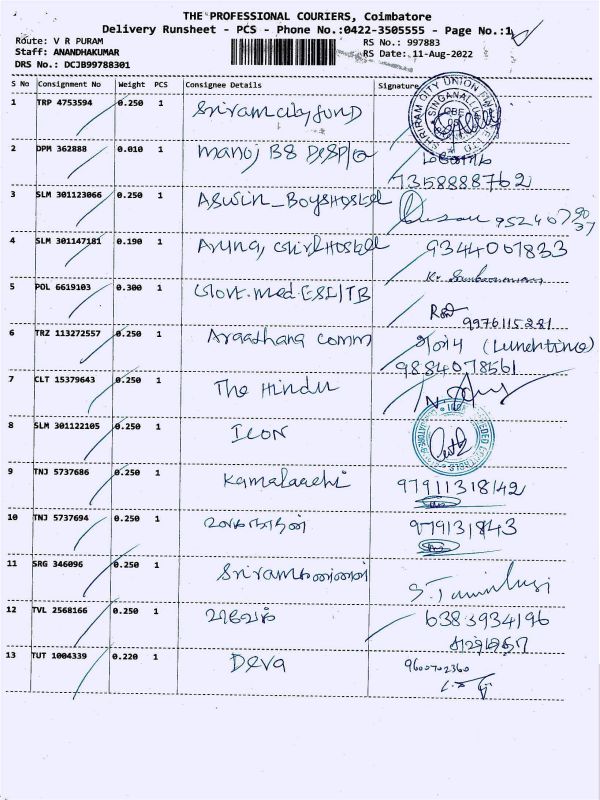 THE PROFESSIONAL COURIERS, Coimbatore
Delivery Runsheet - PCS - Phone No.:0422-3505555 - Page No.:1
Route: V R PURAM
RS No.: 997883
Staff: ANANDHAKUMAR
RS Date: 11-Aug-2022
DRS No.: DCJB99788301
S No Consignment No Weight PCS Consignee Details Signature
1 TRP 4753594 0.250 1 Sriram city fund
2 DPM 362888 0.010 1 manoj BS
7358888762
3 SLM 301123066 0.250 1 Aswin_Boys Hostel
4 SLM 301147181 0.190 1 Aruna, Girl Hostel 9344001833
5 POL 6619103 0.300 1 Govt. med ESI/TB
9976115281
6 TRZ 113272557 0.250 1 Araathana comm (Lunchtime)
9884078561
7 CLT 15379643 0.250 1 The Hindu
8 SLM 301122105 0.250 1 ICON
9 TNJ 5737686 0.250 1 Kamalaachi
10 TNJ 5737694 0.250 1
11 SRG 346096 0.250 1 Sriram
12 TVL 2568166 0.250 1 6383934196
13 TUT 1004339 0.220 1 Deva 9600702360